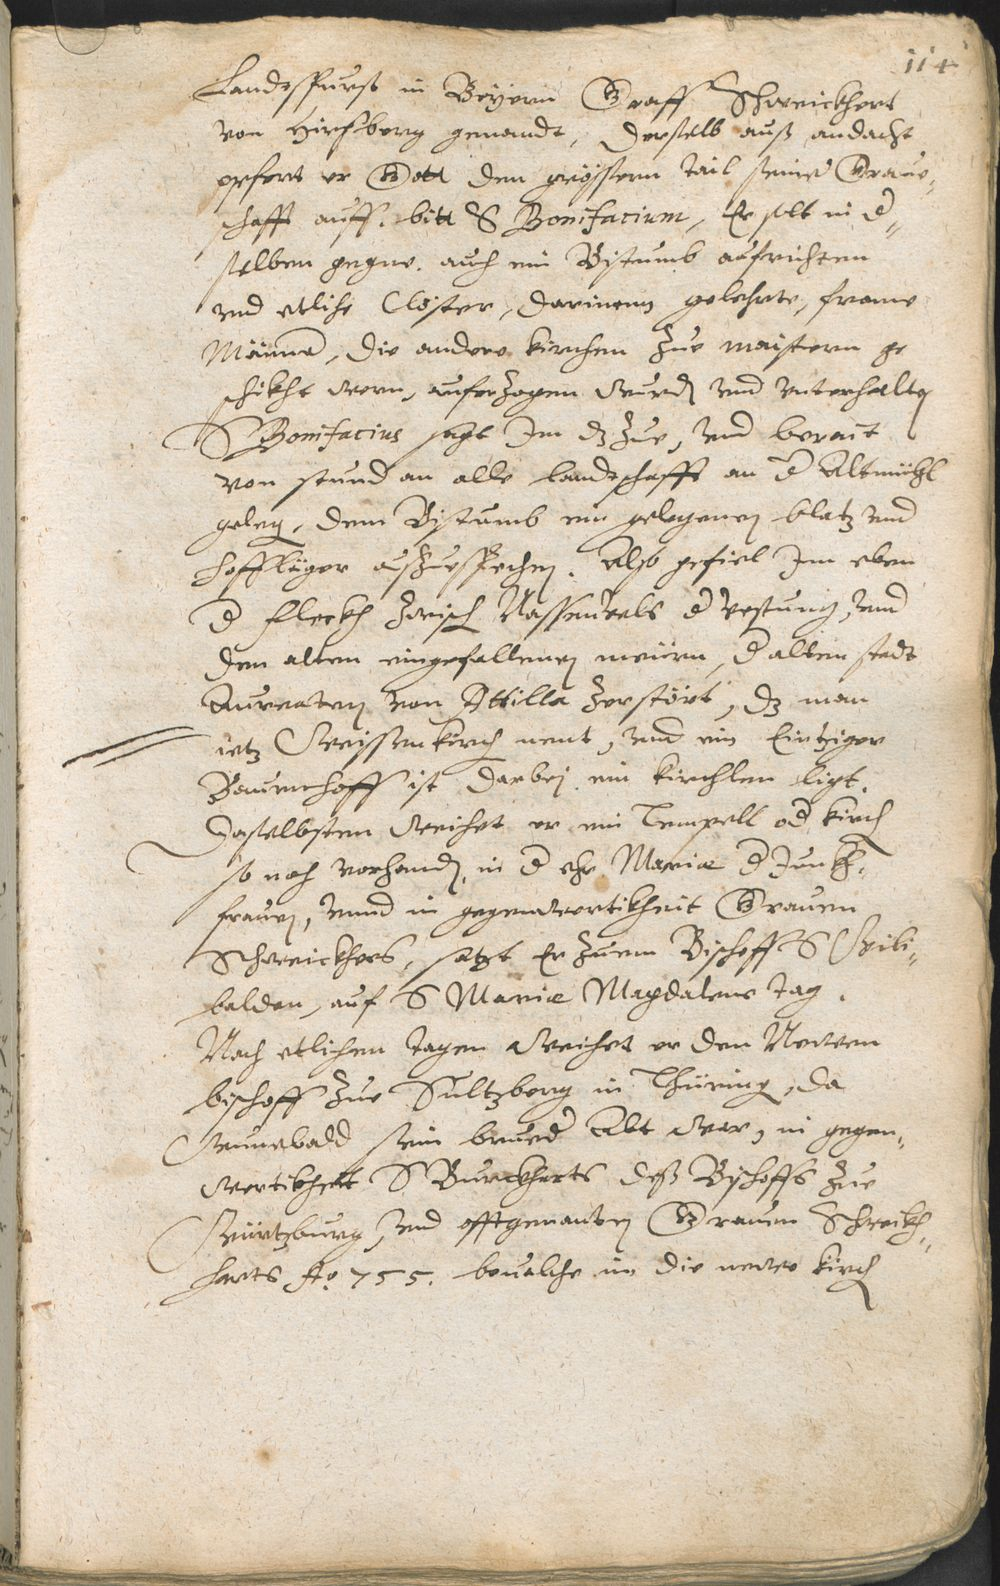 114
Landsfürst in Beyern Graff Schweickhert
von Hirsberg genandt, derselb auß andacht
opfert er Gott den grössern tail seiner Graue-
schafft auff. bitt S Bonifacium, Er solt in d-
selben gegne. auch ein Bistumb aufrichten
vnd etliche Clöster, darinnen gelehrte, frome
Männer, die andere kirchen zue maistern ge
schikht wern, auferzogen wurdn vnd vnterhalten
S Bonifacius sagt Im dz zue, vnd berait
von stund an alle landschafft an d Altmühl
gelegen, dem Bistumb ein gelegenen blatz vnd
hoffläger auszuesprechen. Also gefiel Im eben
d fleckh zwisch Nassenuels d Vestung, vnd
den alten eingefallenen meürn, d alten stadt
Aureaten von Attilla zerstört, dz man
ietz Weissenkirch nent, vnd ein Eintziger
Baurnhoff ist darbej ein kirchlen ligt.
Daselbsten Weihet er ein Tempell od kirch
so noch vorhanden, in d ehr Mariæ d Junkh-
frauen, vnnd in gegenwertikheit Grauen
Schweickhers, setzt Er zuem Bischoff S Wili-
balden, auf S Mariæ Magdalene tag.
Nach etlichen tagen Weihet er den Newen
bischoff zue Sultzberg in Thüring, da
Wunebald sein brued Abt war, in gegen-
wertikheit S Burckharts deß Bischoffs zue
Würtzburg, vnd offtgenanten Grauen Schweikh-
harts Ao. 755. beualche im die newe kirch